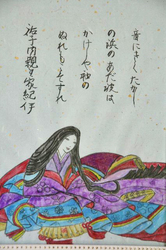 音にきくたかし
の浜のあだ波は
かけじや袖の
ぬれもこそすれ
祐子内親王家紀伊